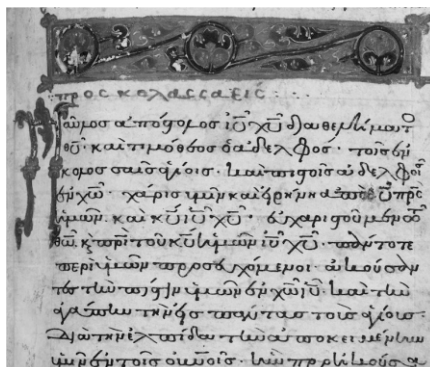 προς κολασσαεις
παῦλος ἀπόστολος ιυ χυ δια θελήματο
θυ· καὶ τιμόθεος ὁ ἀδελφος· τοῖς ἐν
κολοσσαῖς ἁγίοις· καὶ πιστοῖς ἀδελφοῖ
ἐν χω· χάρις ὑμῖν καὶ εἰρήνη ἀπὸ θυ πρς
ἡμῶν· καὶ κυ ιυ χυ· εὐχαριστοῦμεν τω
θω κ πρι τοῦ κυ ἡμῶν ιυ χυ· πάντοτε
περὶ ὑμῶν προσευχόμενοι· ἀκούσαν
τες τὴν πίστιν ὑμῶν ἐν χω ιυ· καὶ τὴν
ἀγάπην τὴν εἰς πάντας τοὺς ἁγίους·
Διὰ τὴν ἐλπίδα τὴν ἀποκειμένην
ὑμῖν ἐν τοῖς οὐνοις· ἣν προηκούσα